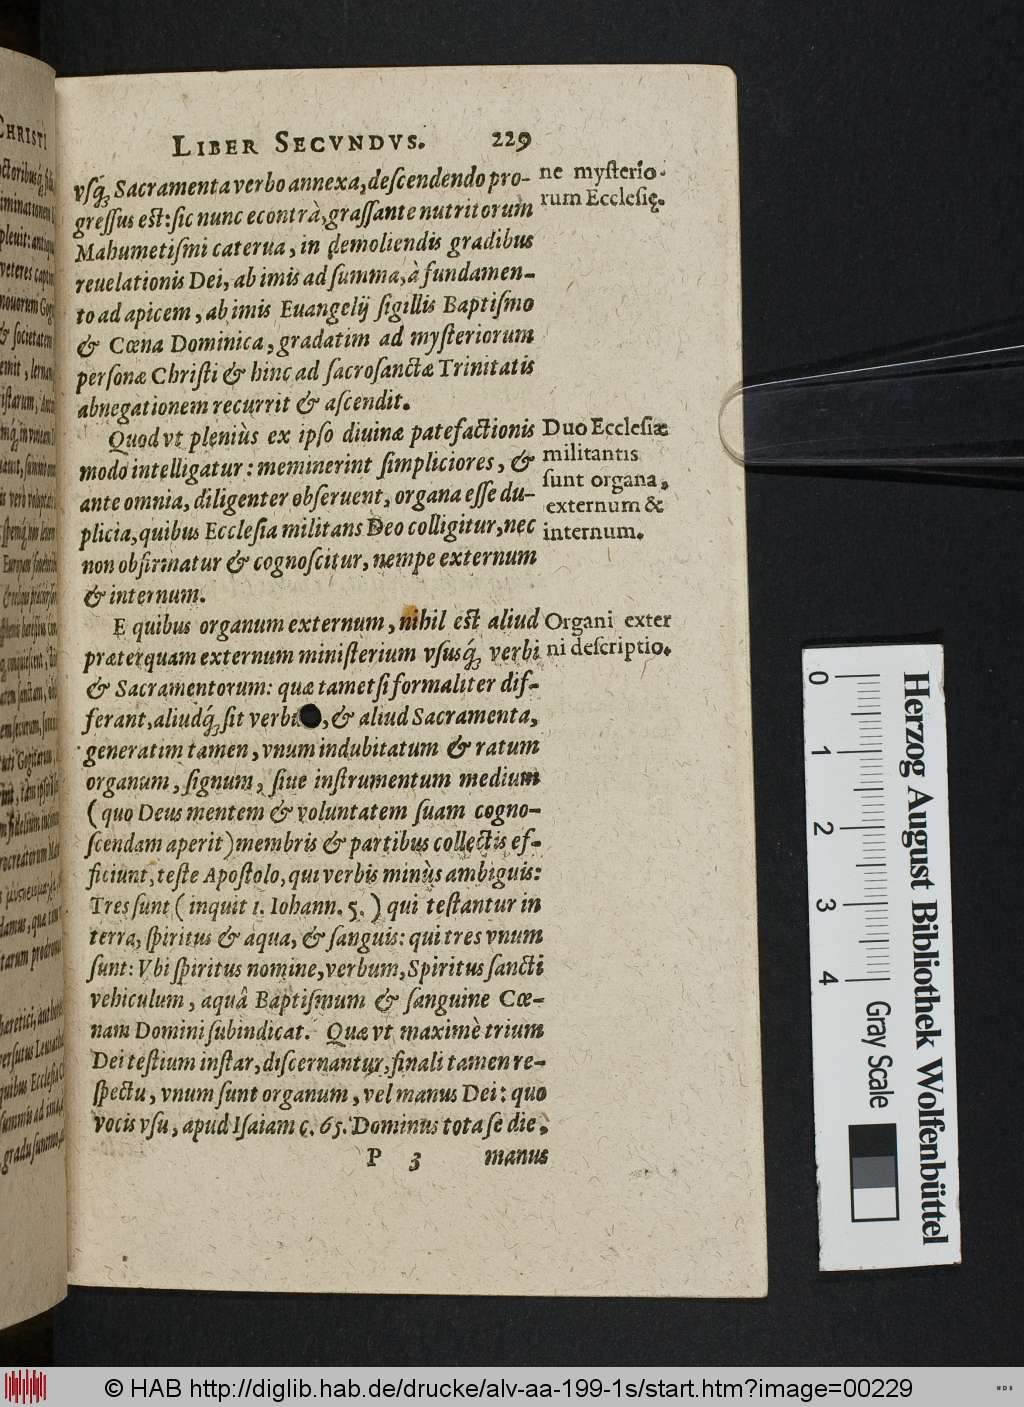 LIBER SECVNDVS. 229
vſq́; Sacramenta verbo annexa, deſcendendo pro-
greſſus eſt: ſic nunc econtrà, graſſante nutritorum
Mahumetiſmi caterua, in demoliendis gradibus
reuelationis Dei, ab imis ad ſumma, à fundamen-
to ad apicem, ab imis Euangelij ſigillis Baptiſmo
& Cœna Dominica, gradatim ad myſteriorum
perſonæ Chriſti & hinc ad ſacroſanctæ Trinitatis
abnegationem recurrit & aſcendit.
Quod vt pleniùs ex ipſo diuinæ patefactionis
modo intelligatur: meminerint ſimpliciores, &
ante omnia, diligenter obſeruent, organa eſſe du-
plicia, quibus Eccleſia militans Deo colligitur, nec
non obſirmatur & cognoſcitur, nempe externum
& internum.
E quibus organum externum, nihil est aliud
præterquam externum miniſterium vſusq́; verbi
& Sacramentorum: quæ tametſi formaliter dif-
ferant, aliudq́; ſit , & aliud Sacramenta,
generatim tamen, vnum indubitatum & ratum
organum, ſignum, ſiue inſtrumentum medium
(quo Deus mentem & voluntatem ſuam cogno-
ſcendam aperit) membris & partibus collectis ef-
ficiunt, teſte Apoſtolo, qui verbis minùs ambiguis:
Tres ſunt (inquit 1. Iohann. 5.) qui teſtantur in
terra, ſpiritus & aqua, & ſanguis: qui tres vnum
ſunt: Vbi ſpiritus nomine, verbum, Spiritus ſancti
vehiculum, aquâ Baptiſmum & ſanguine Cœ-
nam Domini ſubindicat. Quæ vt maximè trium
Dei teſtium inſtar, diſcernantur, finali tamen re-
ſpectu, vnum ſunt organum, vel manus Dei: quo
vocis vſu, apud Iſaiam c. 65. Dominus tota ſe die,
P 3 manus
ne myſterio-
rum Eccleſię.
Duo Eccleſiæ
militantis
ſunt organa,
externum &
internum.
Organi exter
ni deſcriptio.
CHRISTI
0
1
2
3
4
Herzog August Bibliothek Wolfenbüttel
Gray Scale
© HAB http://diglib.hab.de/drucke/alv-aa-199-1s/start.htm?image=00229